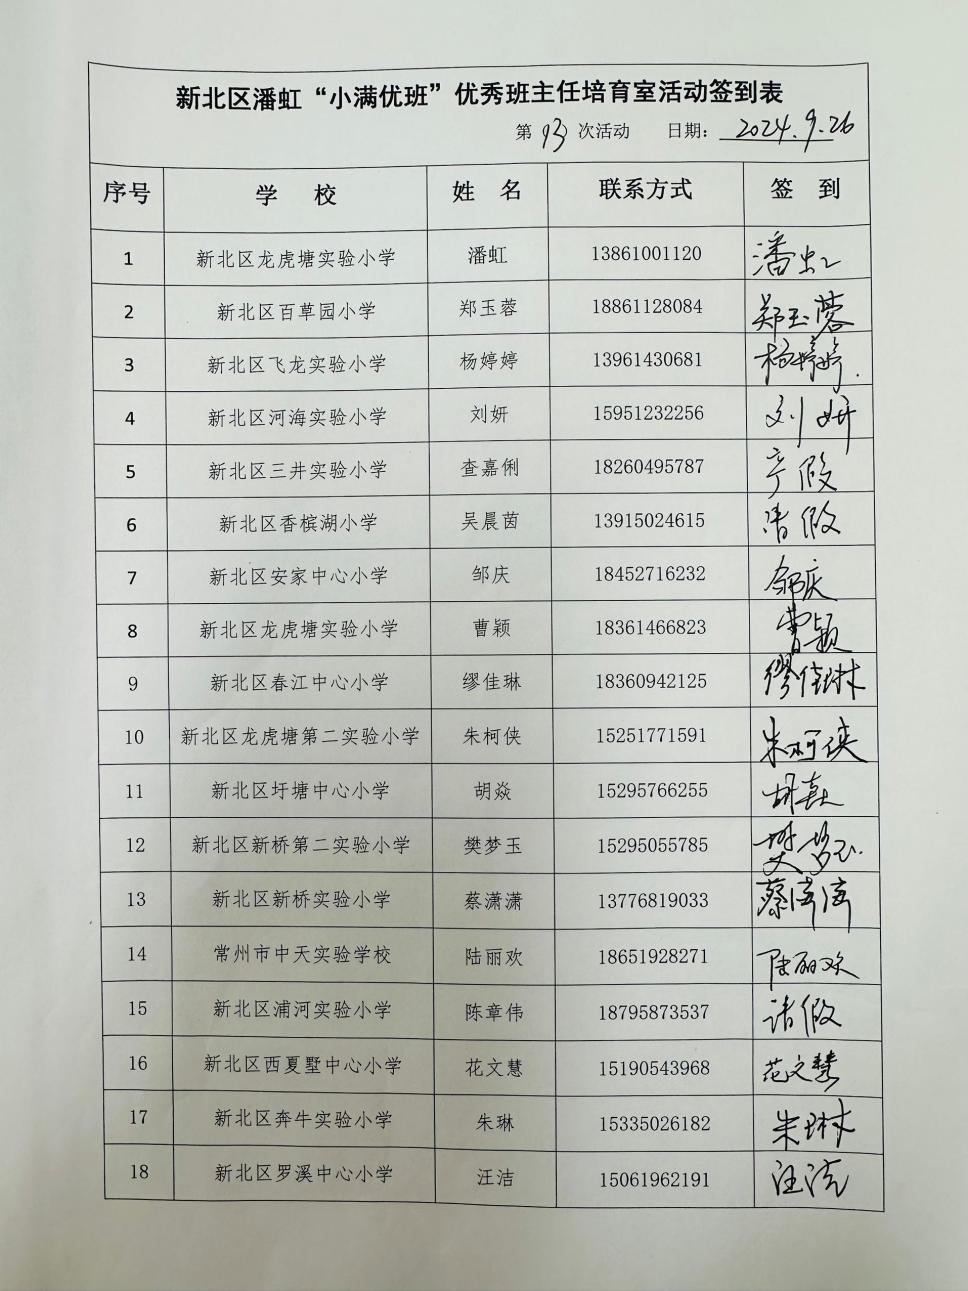 新北区潘虹“小满优班”优秀班主任培育室活动签到表
第 93 次活动 日期: 2024.9.26
序号 学 校 姓 名 联系方式 签 到
1 新北区龙虎塘实验小学 潘虹 13861001120 潘虹
2 新北区百草园小学 郑玉蓉 18861128084 郑玉蓉
3 新北区飞龙实验小学 杨婷婷 13961430681 杨婷婷.
4 新北区河海实验小学 刘妍 15951232256 刘妍
5 新北区三井实验小学 查嘉俐 18260495787 产假
6 新北区香槟湖小学 吴晨茵 13915024615 请假
7 新北区安家中心小学 邹庆 18452716232 邹庆
8 新北区龙虎塘实验小学 曹颖 18361466823 曹颖
9 新北区春江中心小学 缪佳琳 18360942125 缪佳琳
10 新北区龙虎塘第二实验小学 朱柯侠 15251771591 朱柯侠
11 新北区圩塘中心小学 胡焱 15295766255 胡焱
12 新北区新桥第二实验小学 樊梦玉 15295055785 樊梦玉.
13 新北区新桥实验小学 蔡潇潇 13776819033 蔡潇潇
14 常州市中天实验学校 陆丽欢 18651928271 陆丽欢
15 新北区浦河实验小学 陈章伟 18795873537 请假
16 新北区西夏墅中心小学 花文慧 15190543968 花文慧
17 新北区奔牛实验小学 朱琳 15335026182 朱琳
18 新北区罗溪中心小学 汪洁 15061962191 汪洁